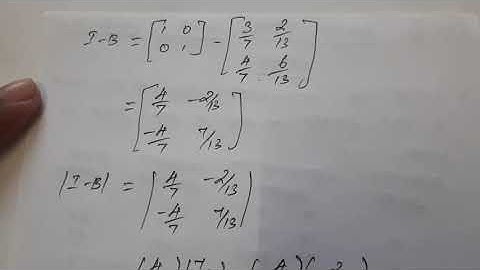 I-B = [1 0 0 1] - [3/7 2/13 4/7 6/13]
= [4/7 -2/13 -4/7 7/13]
|I-B| = |4/7 -2/13 -4/7 7/13|